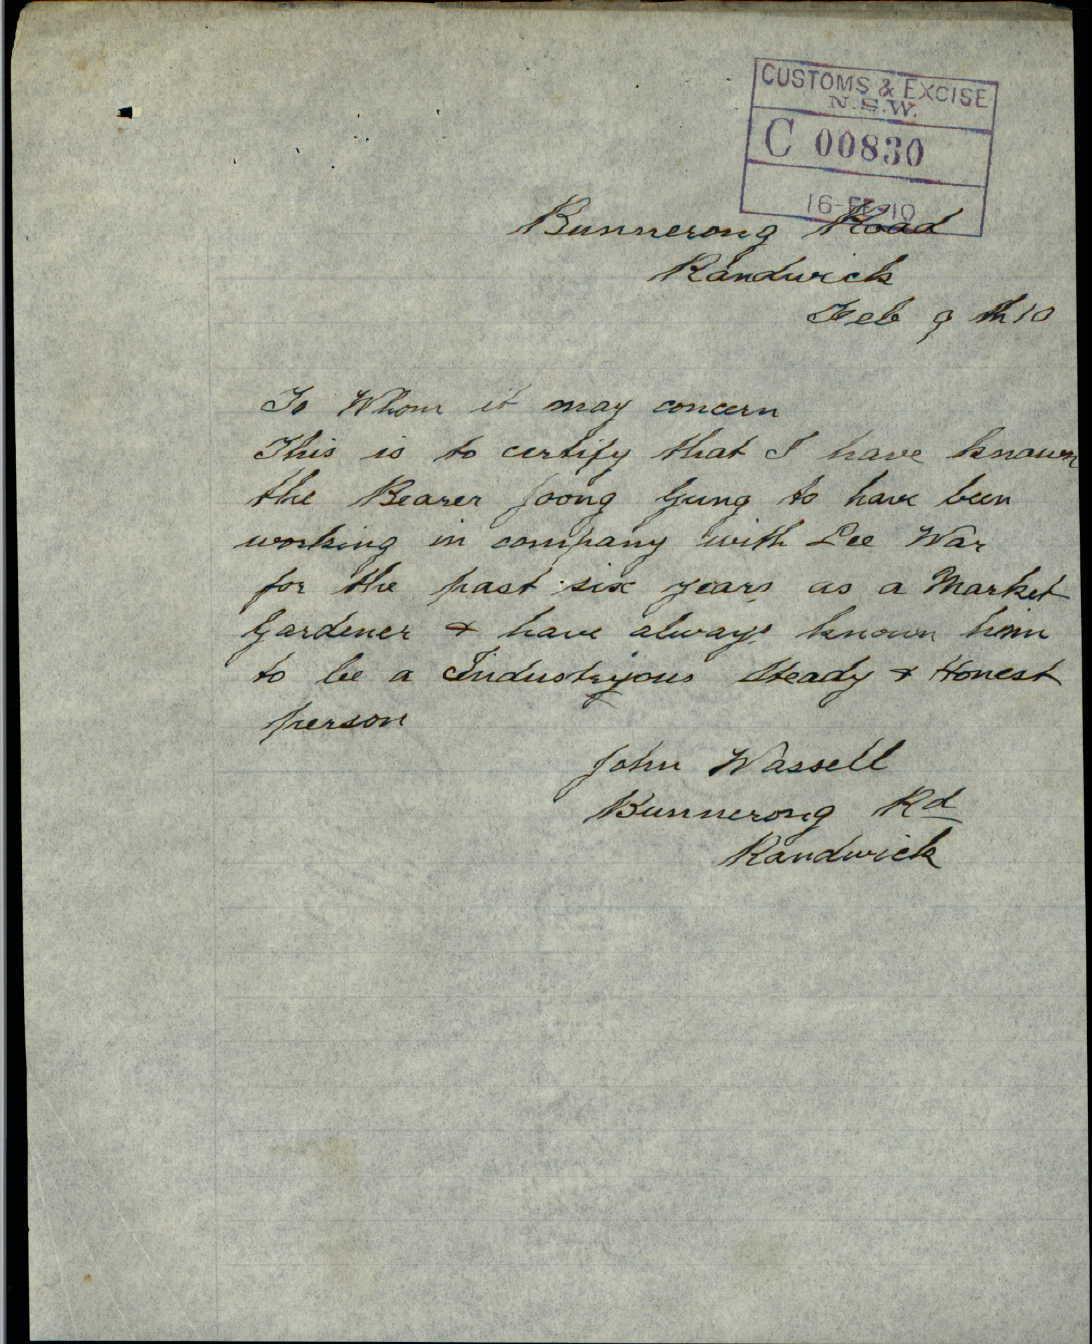 CUSTOMS & EXCISE
N.S.W.
C 00830
16-FE-10
Bunnerong Road
Randwick
Feb 9 th 10
To Whom it may concern
This is to certify that I have known
the Bearer Joong Gung to have been
working in company with Lee War
for the past six years as a Market
Gardener & have always known him
to be a Industryous Steady & Honest
person
John Wassell
Bunnerong Rd
Randwick